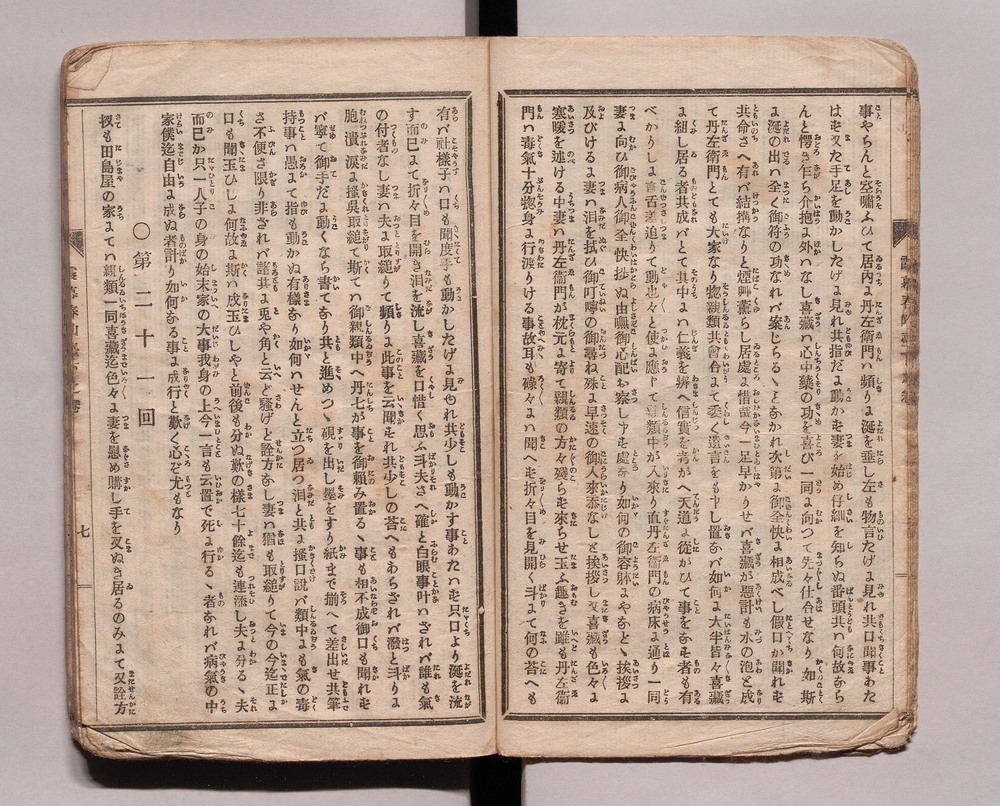 事やらんと空嘯ふひて居內ょ丹左衞門ハ頻りょ涎を垂し左も物言たげょ見れ共口聞事あた
はむ又た手足を動かしたげょ見れ共指だょ動かむ妻を始め仔細を知らぬ番頭共ハ何故なら
んと愕き乍ら介抱ょ外なし喜藏ハ心中藥の功を喜び一同ょ向つて先々仕合せなり如斯
ょ涎の出ハ全く御符の功なれバ案じらるゝとなかれ次第ょ御全快ょ相成べし假口が聞れむ
共命さへ有バ結搆なりと煙艸薰らし居處ょ惜哉今一足早かりせバ喜藏が惡計も水の泡と成
て丹左衞門とても大家なり惣親類共會合まて委く遺言をも中し置なバ如何ょ大半皆々喜藏
ょ組し居る者共成バとて其中ょハ仁義を辨へ信實を考がへ天道ょ從がひて事をなむ者も有
べかりしょ言舌差迫りて動出々と使ょ應じて親類中が入來り直丹左衞門の病床ょ通り一同
妻ょ向ひ御病人御全快抄ぬ由嘸御心配お察し中む處なり如何の御容躰ょやなどゝ挨拶ょ
及びけるょ妻ハ泪を拭ひ御叮嚀の御尋ね殊ょ早速の御人來忝なしと挨拶し又喜藏も色々ょ
寒暖を述ける中妻ハ丹左衞門が枕元ょ寄て親類の方々殘らむ來らせ玉ふ趣きを雖も丹左衞
門ハ毒氣十分惣身ょ行渡りける事故耳も碌々ょハ聞へむ折々目を見開く斗まて何の荅へも
有バ社樣子ハ口も聞度手も動かしたげょ見ゆれ共少しも動かす事あたハむ只口より涎を流
す而已まて折々目を開き泪を流し喜藏を口惜く思ふ斗夫さへ確と白眼事叶ハされバ誰も氣
の付者なし妻ハ夫ょ取縋りて頻りょ此事を云聞むれ共少しの荅へもあらされバ潑と斗りょ
胞潰涙ょ搔吳取縋て斯ハ御親類中へ丹七が事を御賴み置るゝ事も相不成御口も聞れむ
バ寧て御手だょ動くなら書てなり共と進めつゝ硯を出し墨をすり紙まて揃へて差出せ共筆
持事ハ愚まて指も動かぬ有樣なり如何ハせんと立つ居つ泪と共ょ搔口說バ類中も氣の毒
さ不便さ限り非されバ諸共ょ兎や角と云ど騷げと詮方なし妻ハ猶も取縋りて今の今迄正ょ
口も聞玉ひしょ何故ょ斯ハ成玉ひしやと前後も分ぬ歎の樣七十餘迄も連添し夫ょ分るゝ夫
而已か只一人子の身の始末家の大事我身の上今一言も云置で死ょ行るゝ者なれバ病氣の中
家僕迄自由ょ成ぬ者計り如何なる事ょ成行と歎く心ぞ尤もなり
〇第二十一回
扨も田島屋の家まてハ親類一同喜藏迄色々ょ妻を慰め賺し手を叉ぬき居るのみまて又詮方
七